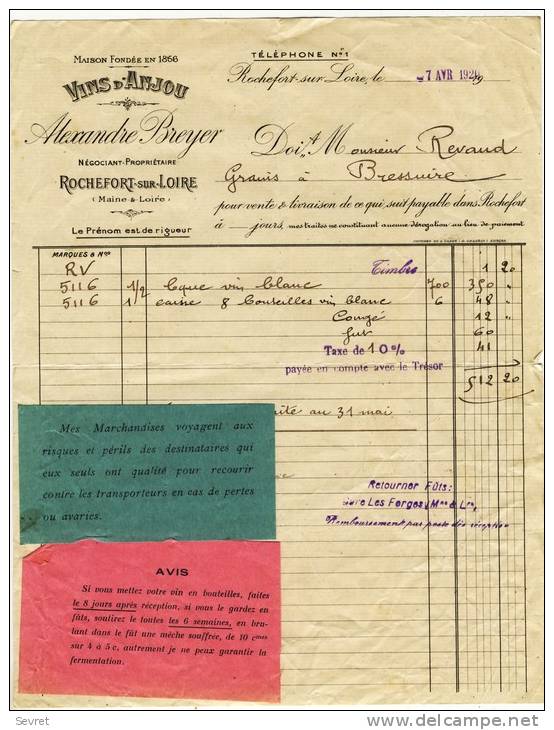 MAISON FONDÉE EN 1866
VINS D'ANJOU
Alexandre Breyer
NÉGOCIANT-PROPRIÉTAIRE
ROCHEFORT-SUR-LOIRE
(MAINE & LOIRE)
Le Prénom est de rigueur
TÉLÉPHONE No 1
Rochefort-sur-Loire, le 7 AVR 192
Doit Monsieur Revaud
à Bressuire
pour vente & livraison de ce qui suit payable dans Rochefort
à jours, mes traites ne constituant aucune dérogation au lieu de paiement
MARQUES & Nos
RV Timbre 1 20
5116 1/2 vin blanc 700 350 "
5116 1 8 bouteilles vin blanc 6 48 "
Congé 12 "
fut 60
Taxe de 10 % 41
payée en compte avec le Trésor
512 20
au 31 mai
Mes Marchandises voyagent aux
risques et périls des destinataires qui
eux seuls ont qualité pour recourir
contre les transporteurs en cas de pertes
ou avaries.
Retourner Fûts:
Gare Les Forges (Mne & Lre)
Remboursement par poste dès réception
AVIS
Si vous mettez votre vin en bouteilles, faites
le 8 jours après réception, si vous le gardez en
fûts, soutirez le toutes les 6 semaines, en bru-
lant dans le fût une mèche souffrée, de 10 cmes
sur 4 à 5 c, autrement je ne peux garantir la
fermentation.
Sevret
www.delcampe.net